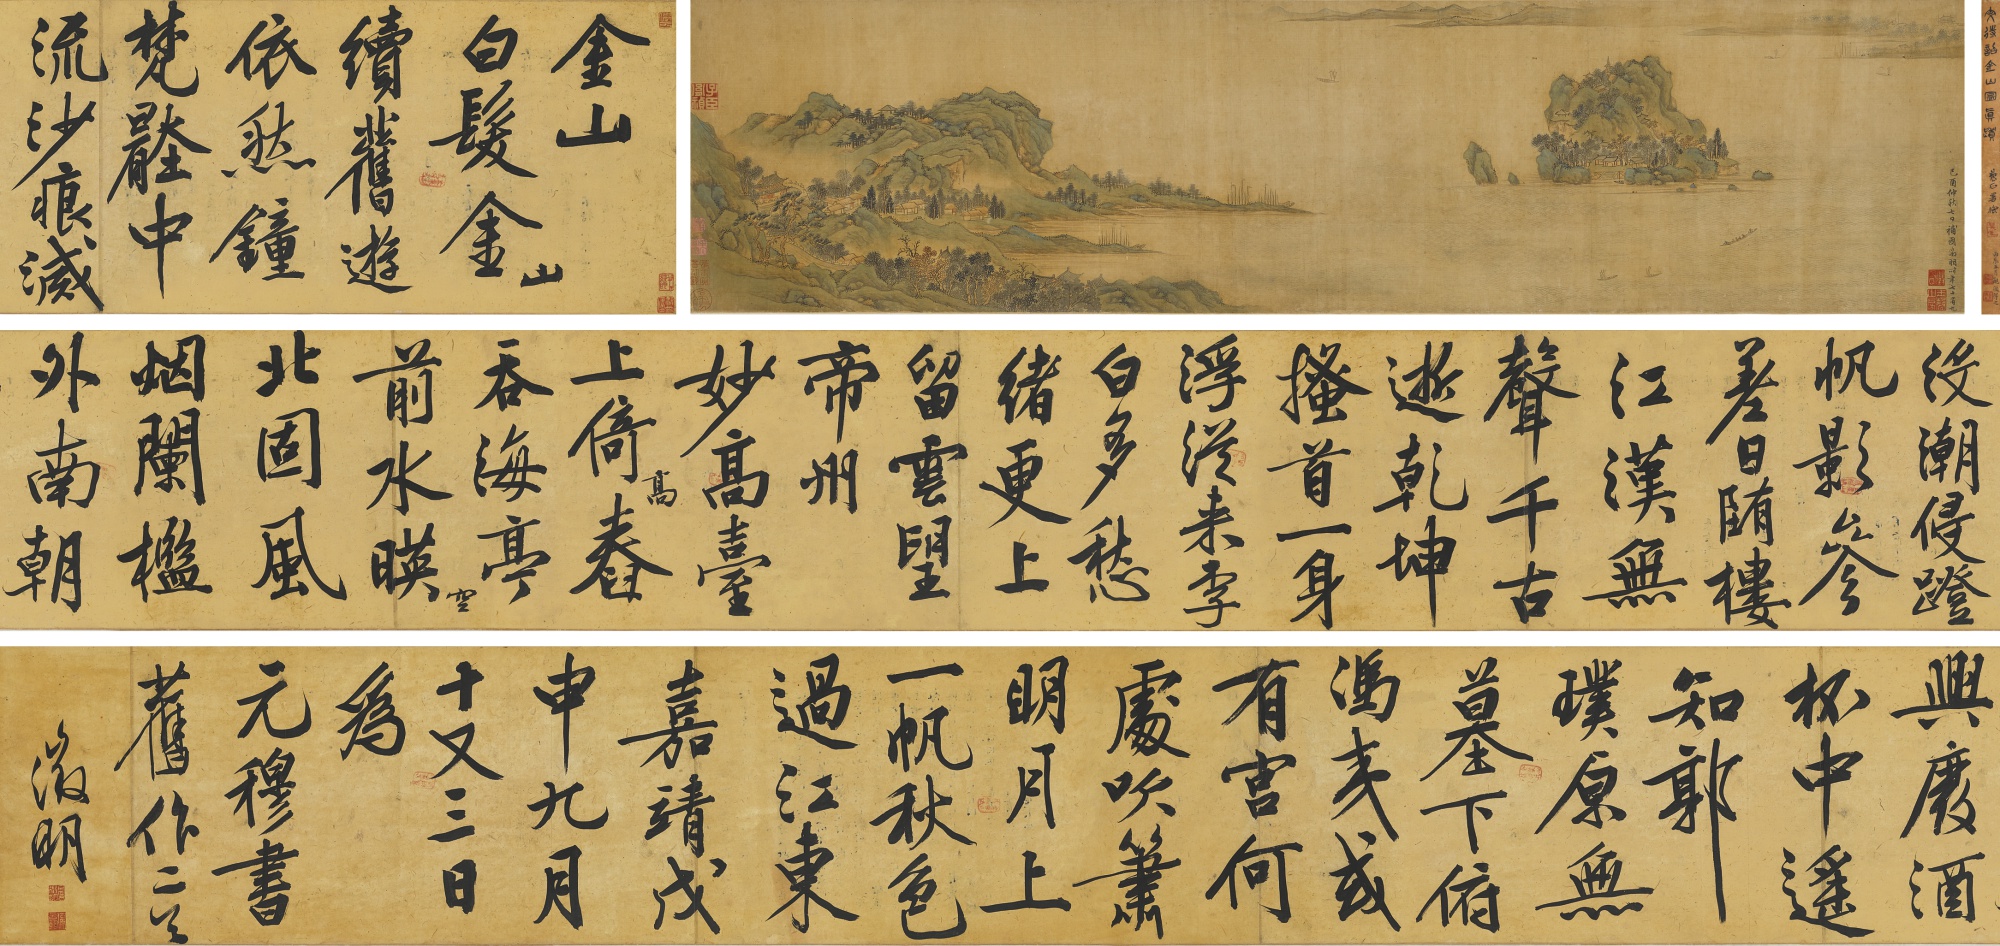 文待詔金山圖真蹟
金山
白髮金山
續舊遊
依然鐘
梵中
流沙痕滅
没潮侵蹬
帆影參
差日隋樓
江漢無
聲千古
逝乾坤
搔首一身
浮從來李
白多愁
緒更上
留雲望
帝州
妙高臺
上倚高舂
吞海亭
前水映空
北固風
烟闌檻
外南朝
興廢酒
杯中遥
知郭
璞原無
墓下俯
馮夷或
有宮何
處吹簫
明月上
一帆秋色
過江東
嘉靖戊
申九月
十又三日
為
元穆書
舊作二首
徵明